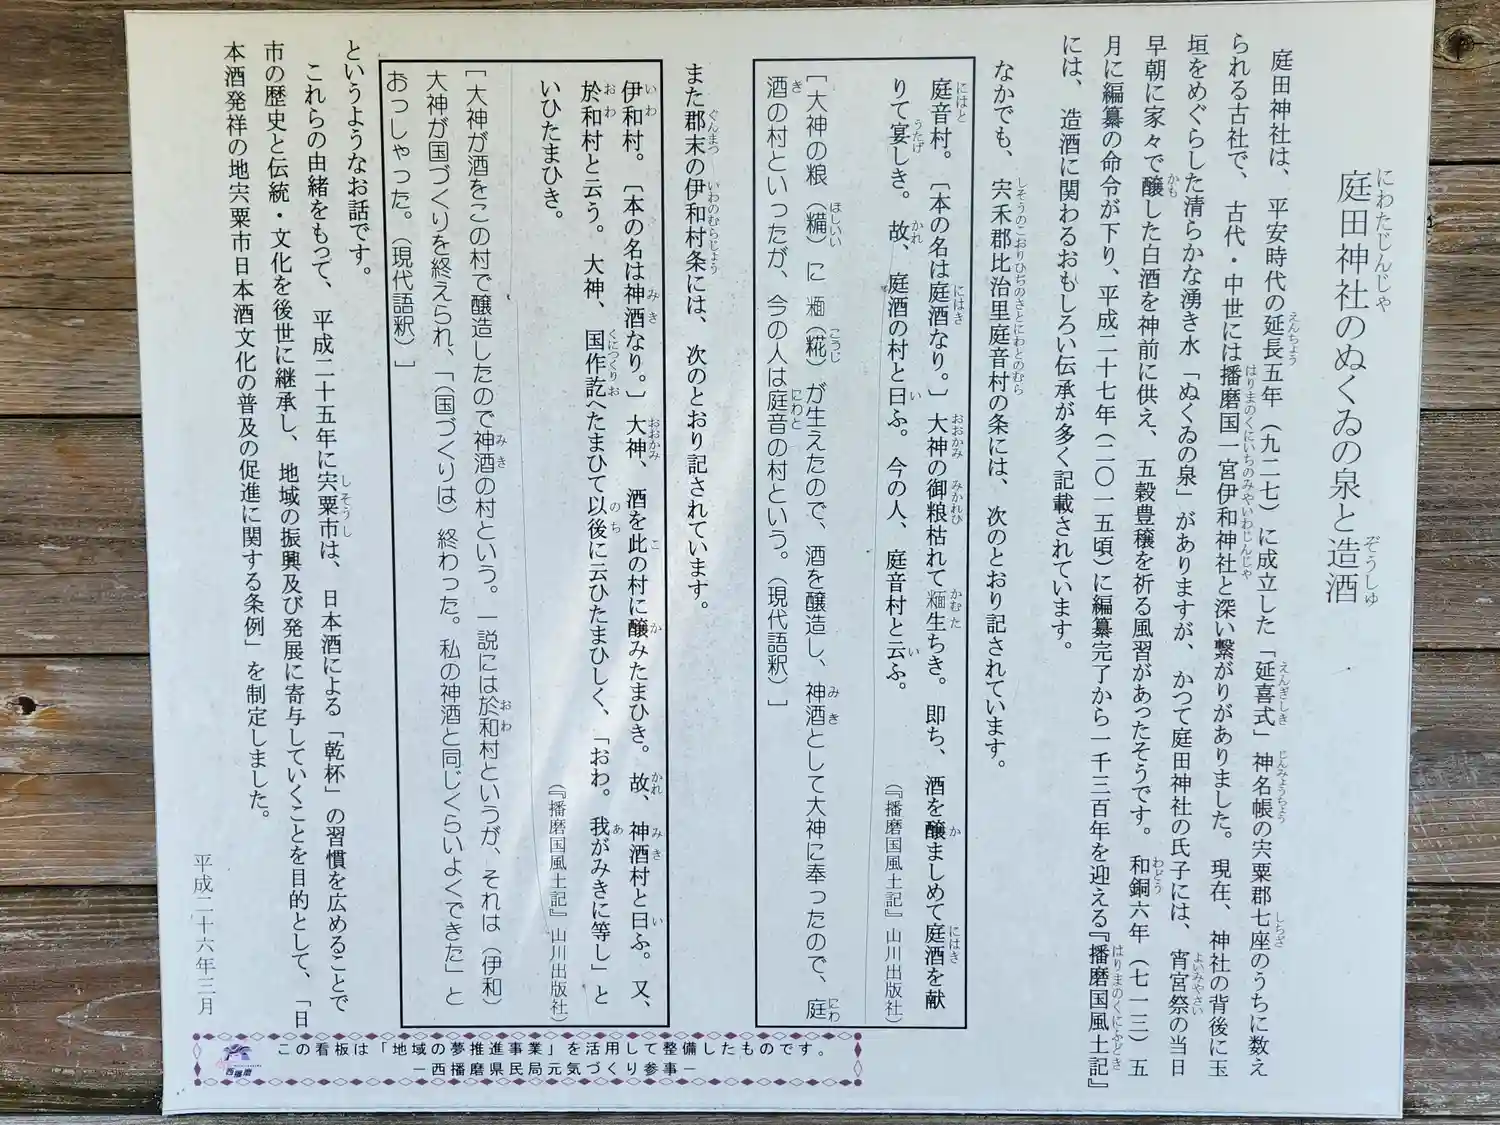 庭田神社のぬくゐの泉と造酒
庭田神社は、平安時代の延長五年（九二七）に成立した「延喜式」神名帳の宍粟郡七座のうちに数え
られる古社で、古代・中世には播磨国一宮伊和神社と深い繋がりがありました。現在、神社の背後に玉
垣をめぐらした清らかな湧き水「ぬくゐの泉」がありますが、かつて庭田神社の氏子には、宵宮祭の当日
早朝に家々で醸した白酒を神前に供え、五穀豊穣を祈る風習があったそうです。和銅六年（七一三）五
月に編纂の命令が下り、平成二十七年（二〇一五頃）に編纂完了から一千三百年を迎える『播磨国風土記』
には、造酒に関わるおもしろい伝承が多く記載されています。
なかでも、宍禾郡比治里庭音村の条には、次のとおり記されています。
庭音村。〔本の名は庭酒なり。〕大神の御粮枯れて糆生ちき。即ち、酒を醸ましめて庭酒を献
りて宴しき。故、庭酒の村と曰ふ。今の人、庭音村と云ふ。
（『播磨国風土記』山川出版社）
［大神の粮（糒）に糆（糀）が生えたので、酒を醸造し、神酒として大神に奉ったので、庭
酒の村といったが、今の人は庭音の村という。（現代語釈）］
また郡末の伊和村条には、次のとおり記されています。
伊和村。〔本の名は神酒なり。〕大神、酒を此の村に醸みたまひき。故、神酒村と曰ふ。又、
於和村と云う。大神、国作訖へたまひて以後に云ひたまひしく、「おわ。我がみきに等し」と
いひたまひき。
（『播磨国風土記』山川出版社）
［大神が酒をこの村で醸造したので神酒の村という。一説には於和村というが、それは（伊和）
大神が国づくりを終えられ、「（国づくりは）終わった。私の神酒と同じくらいよくできた」と
おっしゃった。（現代語釈）］
というようなお話です。
これらの由緒をもって、平成二十五年に宍粟市は、日本酒による「乾杯」の習慣を広めることで
市の歴史と伝統・文化を後世に継承し、地域の振興及び発展に寄与していくことを目的として、「日
本酒発祥の地宍粟市日本酒文化の普及の促進に関する条例」を制定しました。
平成二十六年三月
この看板は「地域の夢推進事業」を活用して整備したものです。
－西播磨県民局元気づくり参事－
西播磨